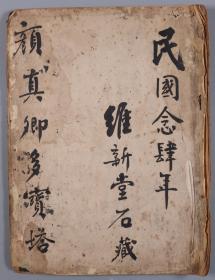 民國念肆年
維新堂石藏
顏真卿多寶塔